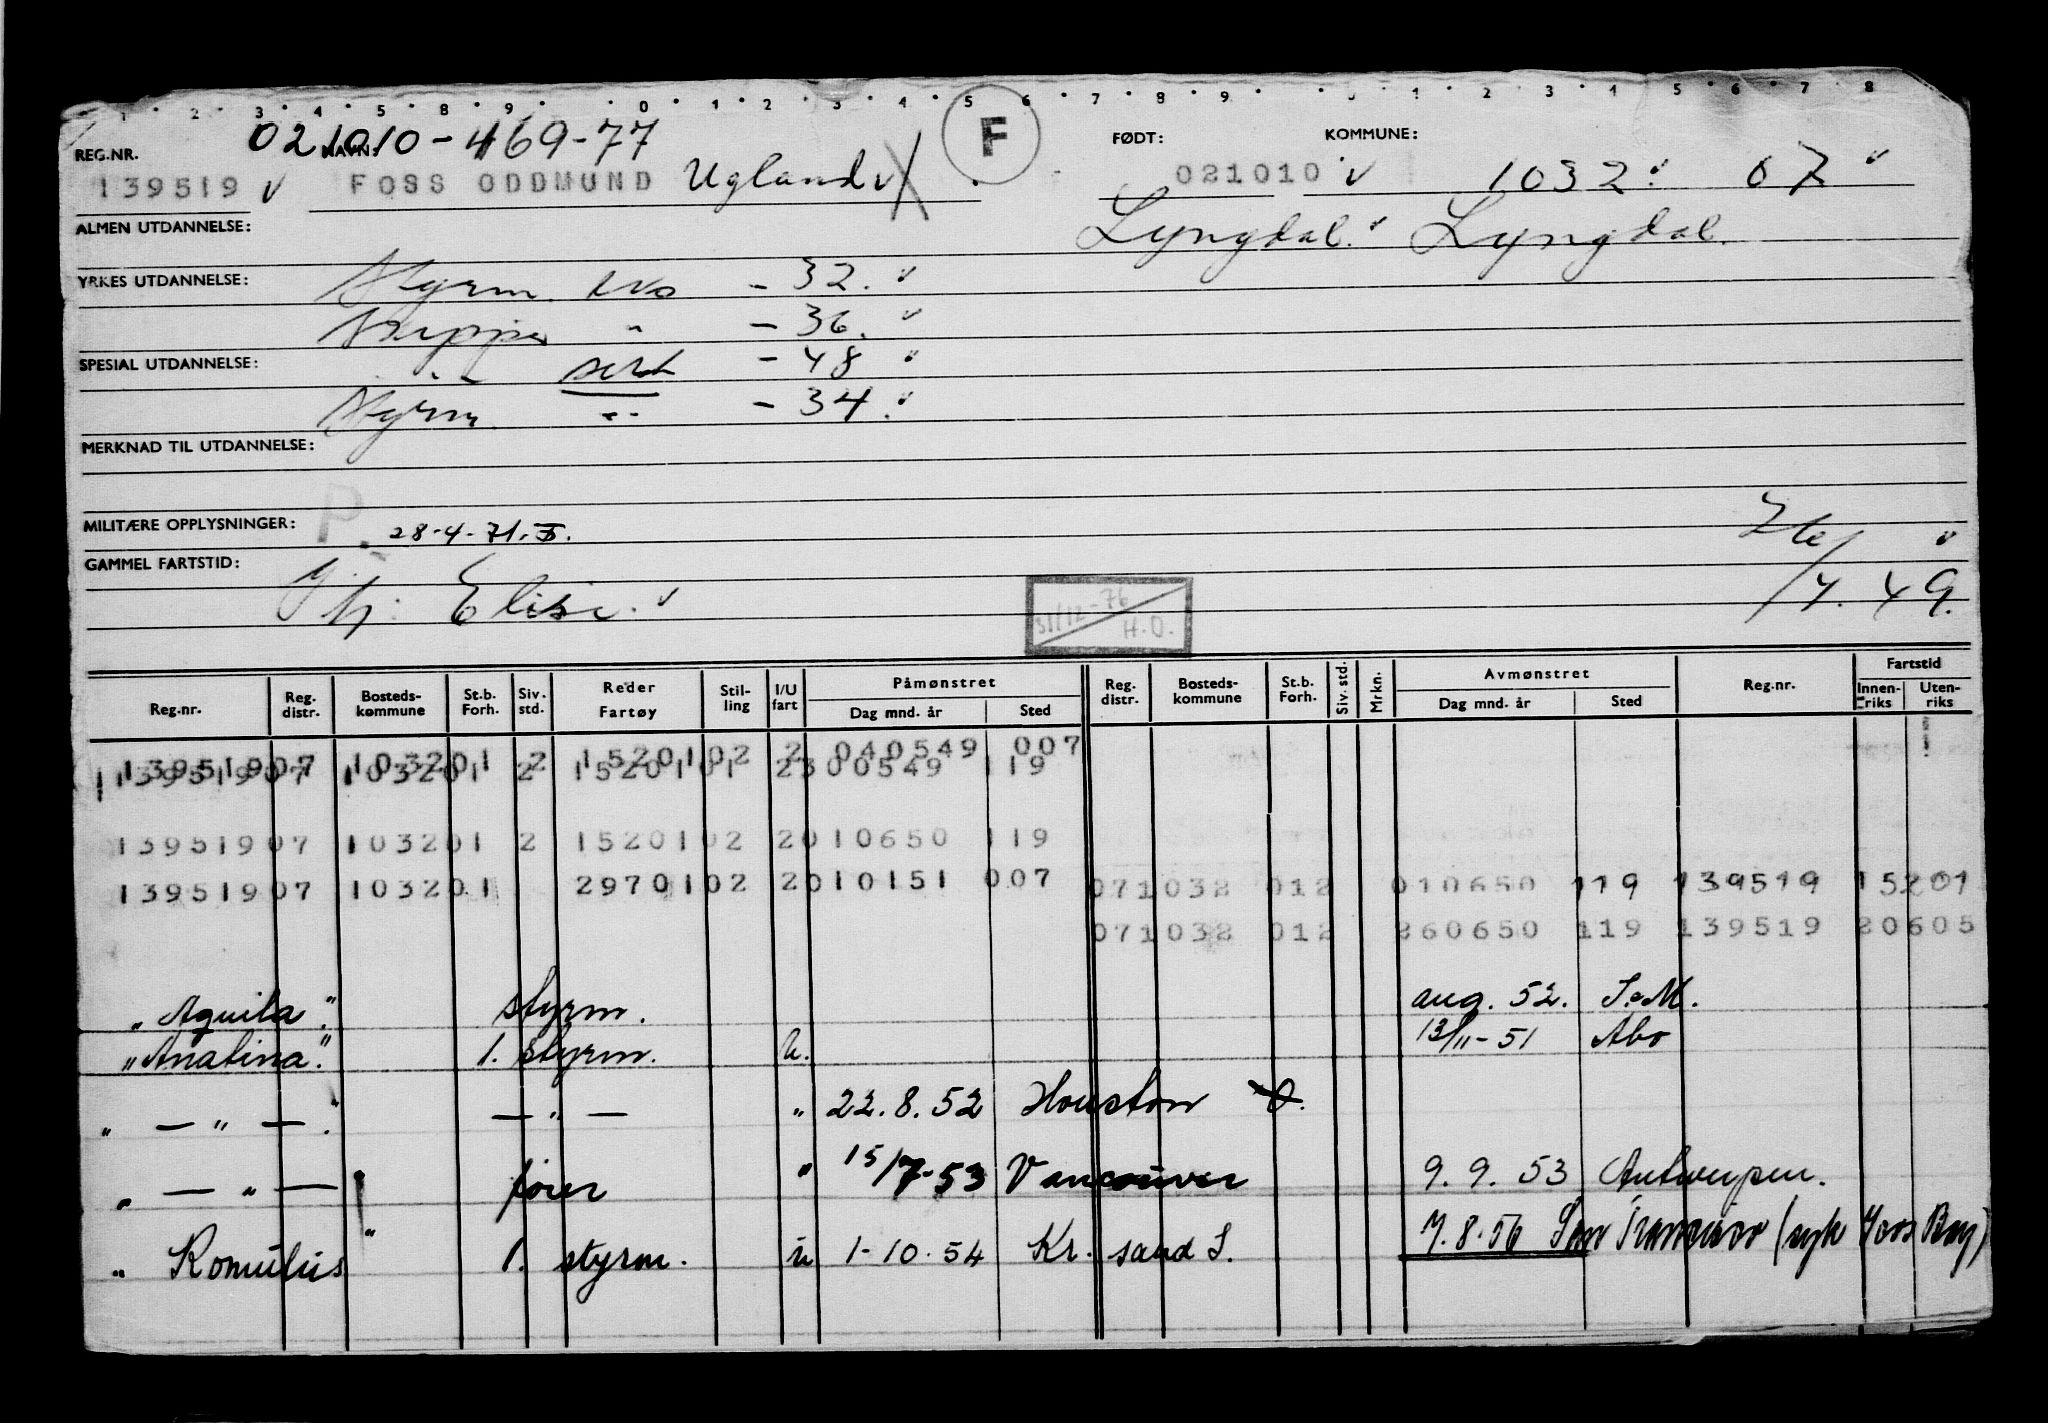 1 2 3 4 5 8 9 0 1 2 3 4 5 6 7 8 9 0 1 2 3 4 5 6 7 8
021010-469-77
F
REG.NR. NAVN: FØDT: KOMMUNE:
139519 v FOSS ODDMUND Ugland v 021010 v 1032 v 07 v
ALMEN UTDANNELSE: Lyngdal. v Lyngdal.
YRKES UTDANNELSE: Styrm. eks - 32. v
Skipper " - 36. v
SPESIAL UTDANNELSE: " sert - 48 v
Styrm " - 34. v
MERKNAD TIL UTDANNELSE:
MILITÆRE OPPLYSNINGER: P. 28-4-71.
GAMMEL FARTSTID:
G. h: Elise. v
/4. 49.
31/12-76
H.O.
Reg.nr. Reg. distr. Bosteds-kommune St.b. Forh. Siv. std. Reder Fartøy Stil-ling I/U fart Påmønstret Dag mnd. år Sted Reg. distr. Bosteds-kommune St.b. Forh. Siv. std. Mrkn. Avmønstret Dag mnd. år Sted Reg.nr. Fartstid Innen-riks Uten-riks
139519 07 1032 01 2 15201 02 2 040549 007
139519 07 1032 01 2 15201 01 2 300549 119
139519 07 1032 01 2 15201 02 2 010650 119
139519 07 1032 01 29701 02 2 010151 007 07 1032 012 010650 119 139519 15201
07 1032 012 260650 119 139519 20605
"Aquila". styrm. aug. 52. S.M.
"Anatina". 1. styrm. U. 13/11-51 Abo
" — " — ". — " — " 22.8.52 Houston
" — " — " fører " 15/7-53 Vancouver 9.9.53 Antwerpen.
" Romulus " 1. styrm. u 1-10.54 Kr. sand S. 7.8.56 San Francisco (syk Coos Bay)